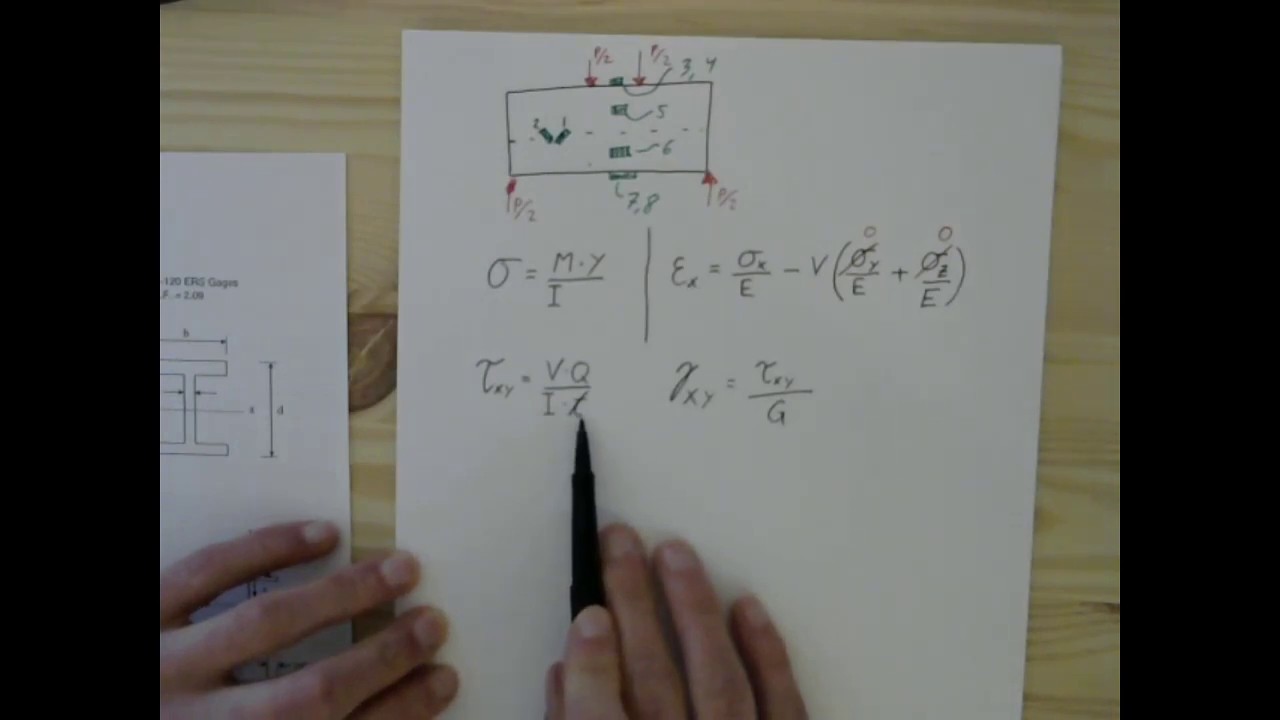 P/2 P/2 3, 4
5
2 1
6
P/2 7,8 P/2
σ = M·Y / I | εx = σx/E − ν(σy/E + σz/E) 0 0
τxy = V·Q / I·t γxy = τxy / G
-120 ERS Gages
.F. = 2.09
b
x d